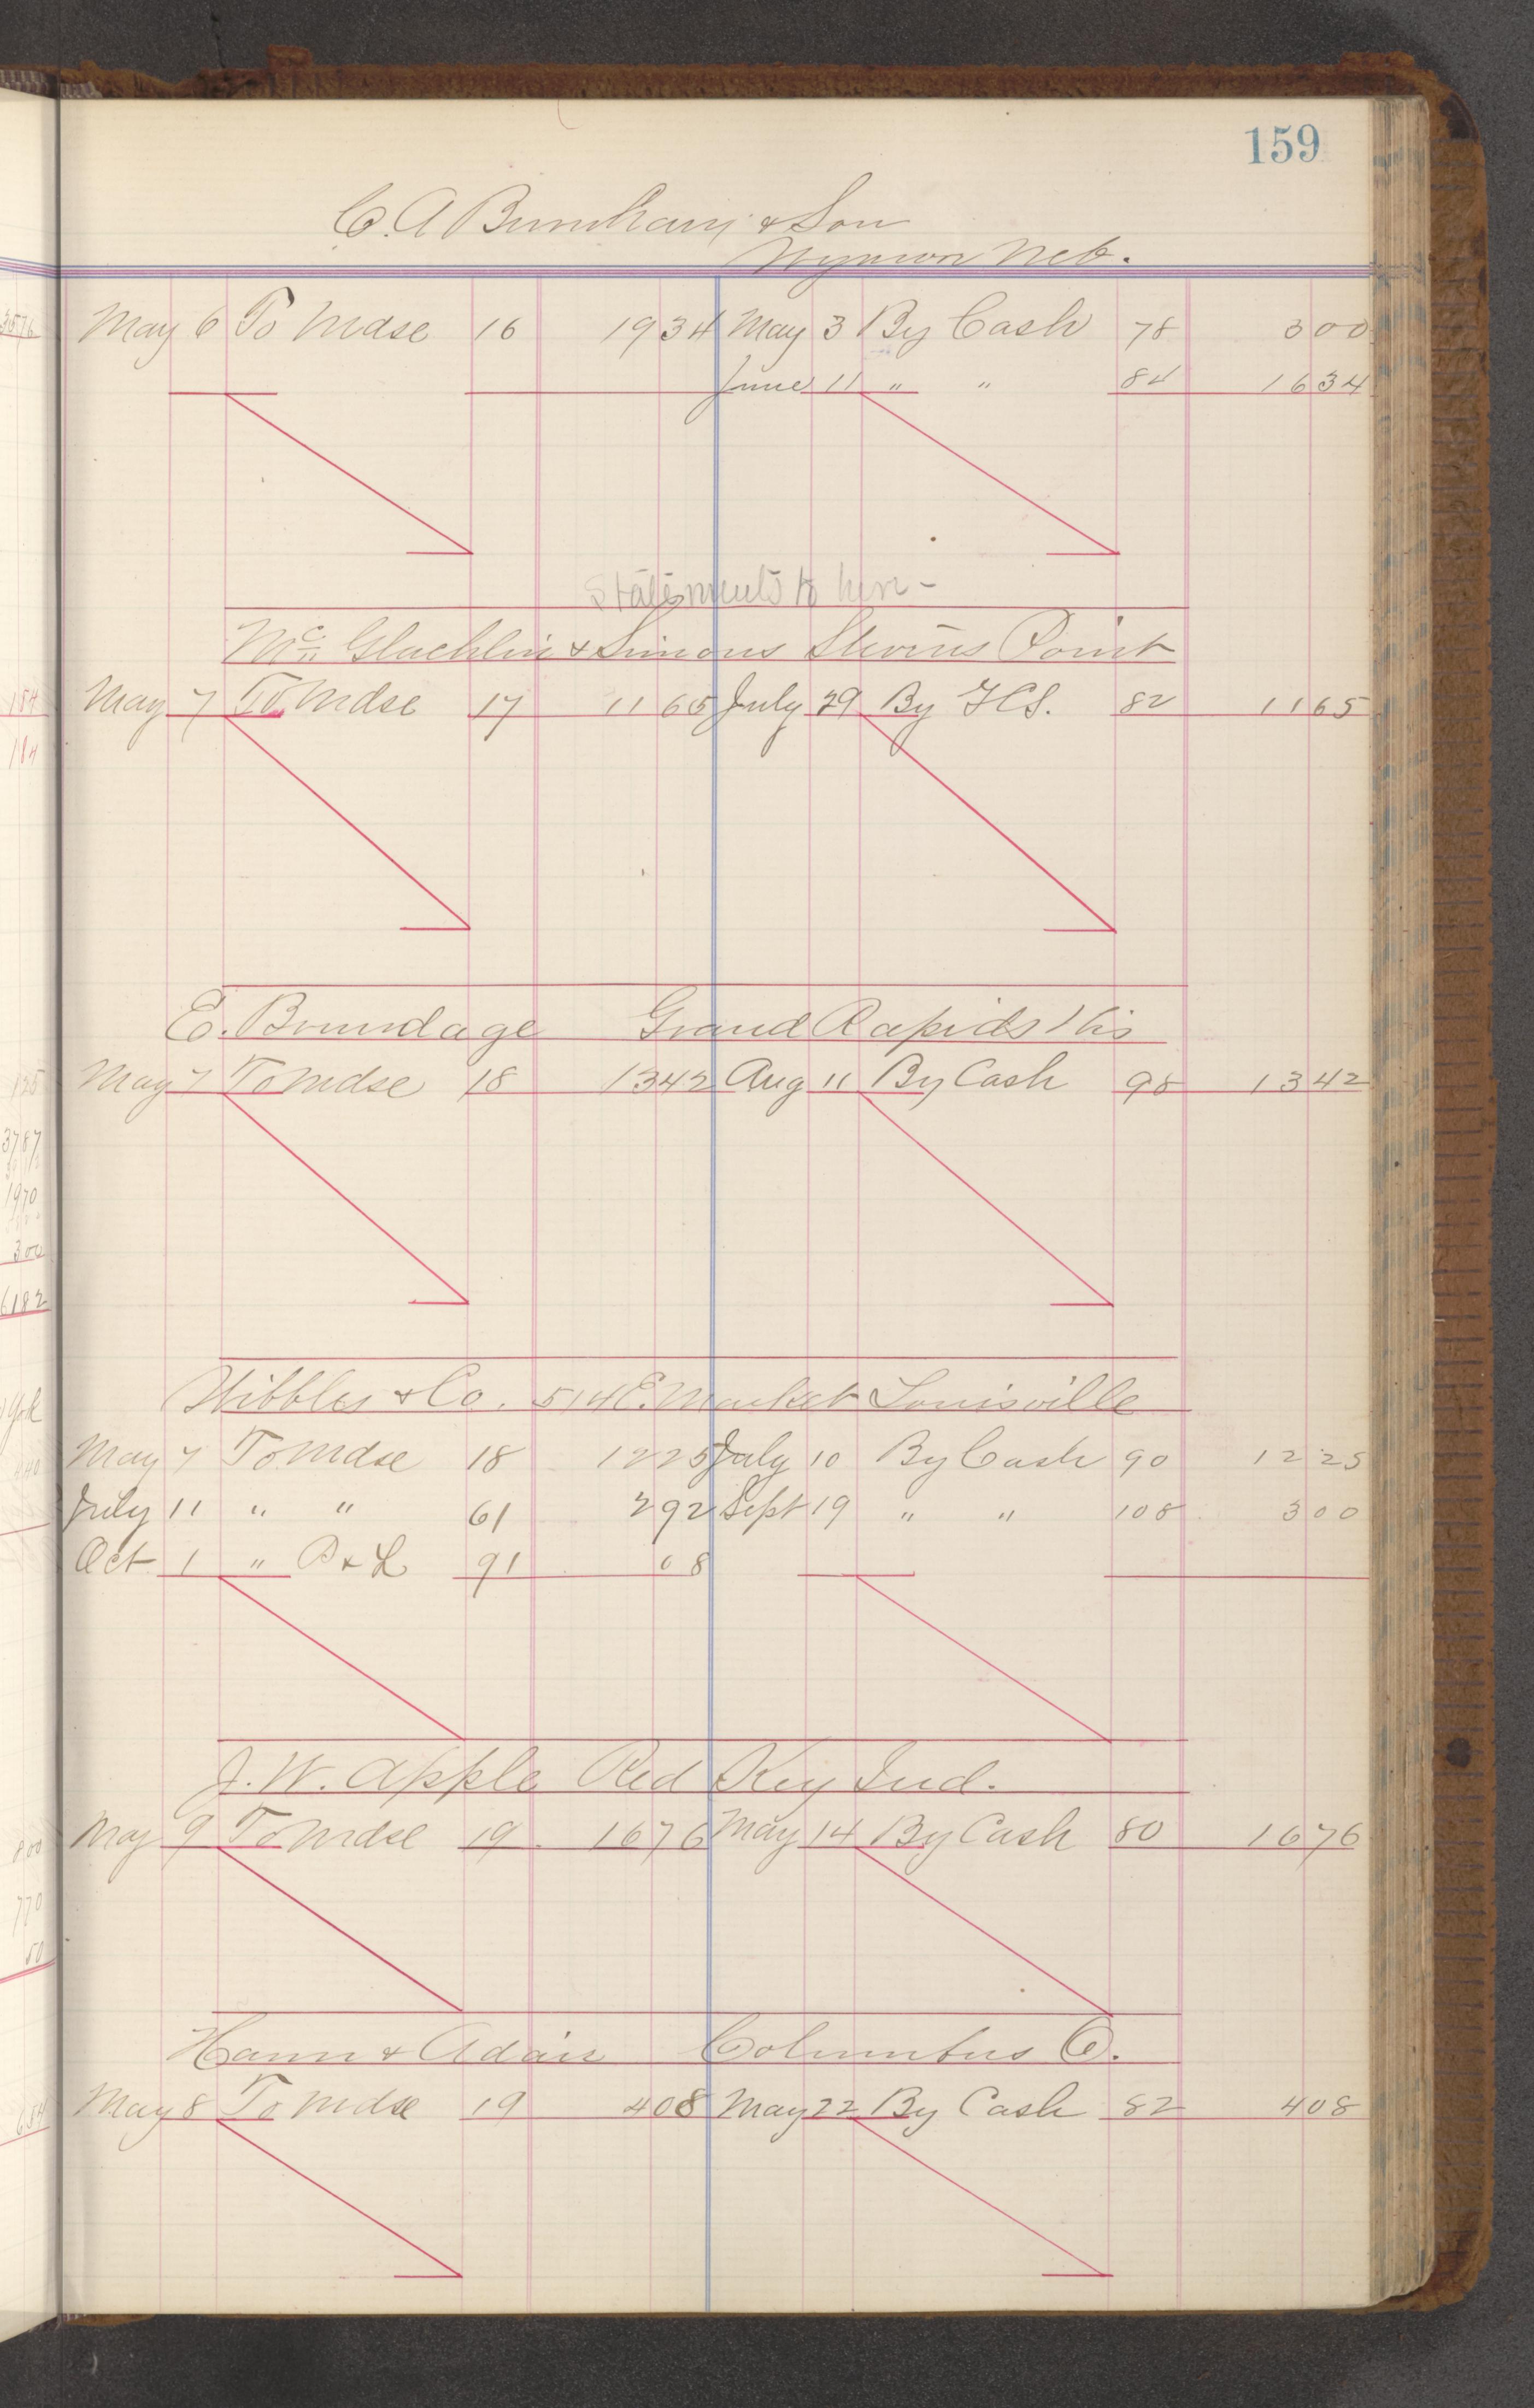 159
C. A Burnham & Son
Wymore Neb.
May 6 To Mdse 16 1934 May 3 By Cash 78 300
June 11 " " 84 1634
Statements to here -
Mc Glachlin & Simons Stevens Point
May 7 To Mdse 17 1165 July 29 By FCS. 82 1165
E. Brundage Grand Rapids Wis
May 7 To Mdse 18 1342 Aug 11 By Cash 98 1342
Wibbles & Co. 514 E. Market Louisville
May 7 To Mdse 18 1225 July 10 By Cash 90 1225
July 11 " " 61 292 Sept 19 " " 108 300
Oct 1 " P & L 91 08
J. W. Apple Red Key Ind.
May 9 To Mdse 19 1676 May 14 By Cash 80 1676
Hann & Adair Columbus O.
May 8 To Mdse 19 408 May 22 By Cash 82 408